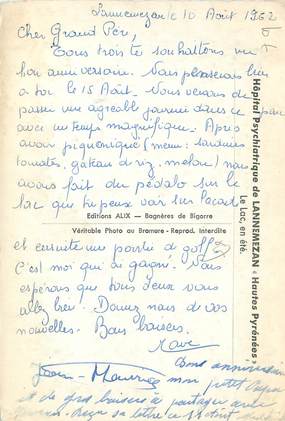 Lannemezan le 10 Août 1962
Cher Grand Père,
Tous trois te souhaitons un
bon anniversaire. Nous penserons bien
à toi le 15 Août. Nous venons de
passer une agréable journée dans ce parc
avec un temps magnifique. Après
avoir piqueniqué (menu : sardines
tomates, gâteau de riz, melon) nous
avons fait du pédalo sur le
lac que tu peux voir sur la carte
Editions ALIX — Bagnères de Bigorre
Véritable Photo au Bromure - Reprod. Interdite
et ensuite une partie de golf
C'est moi qui ai gagné. Nous
espérons que tous deux vous
allez bien. Donnez nous de vos
nouvelles. Bons baisers.
Bons anniversaire
Jean-Maurice mon petit papa
et de gros baisers à partager avec
sa lettre
Hôpital Psychiatrique de LANNEMEZAN « Hautes Pyrénées »
Le Lac, en été.